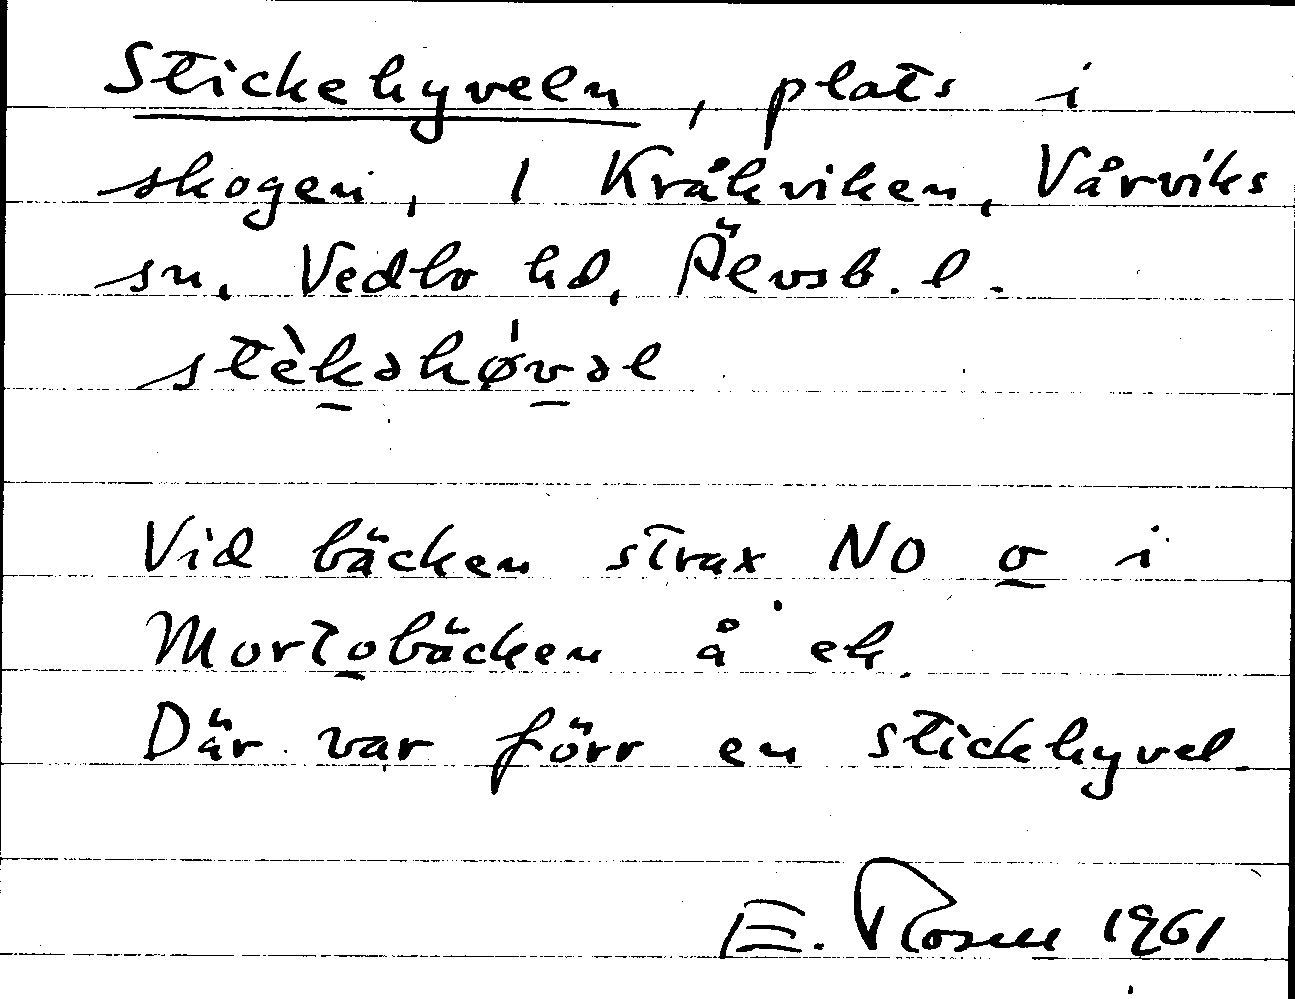 Stickehyveln, plats i
skogen, 1 Kråkviken, Vårviks
sn. Vedbo hd, Älvsb. l.
stèkəhǿvəl
Vid bäcken strax NO o i
Mortobäcken å ek.
Där var förr en stickhyvel.
E. Rosell 1961